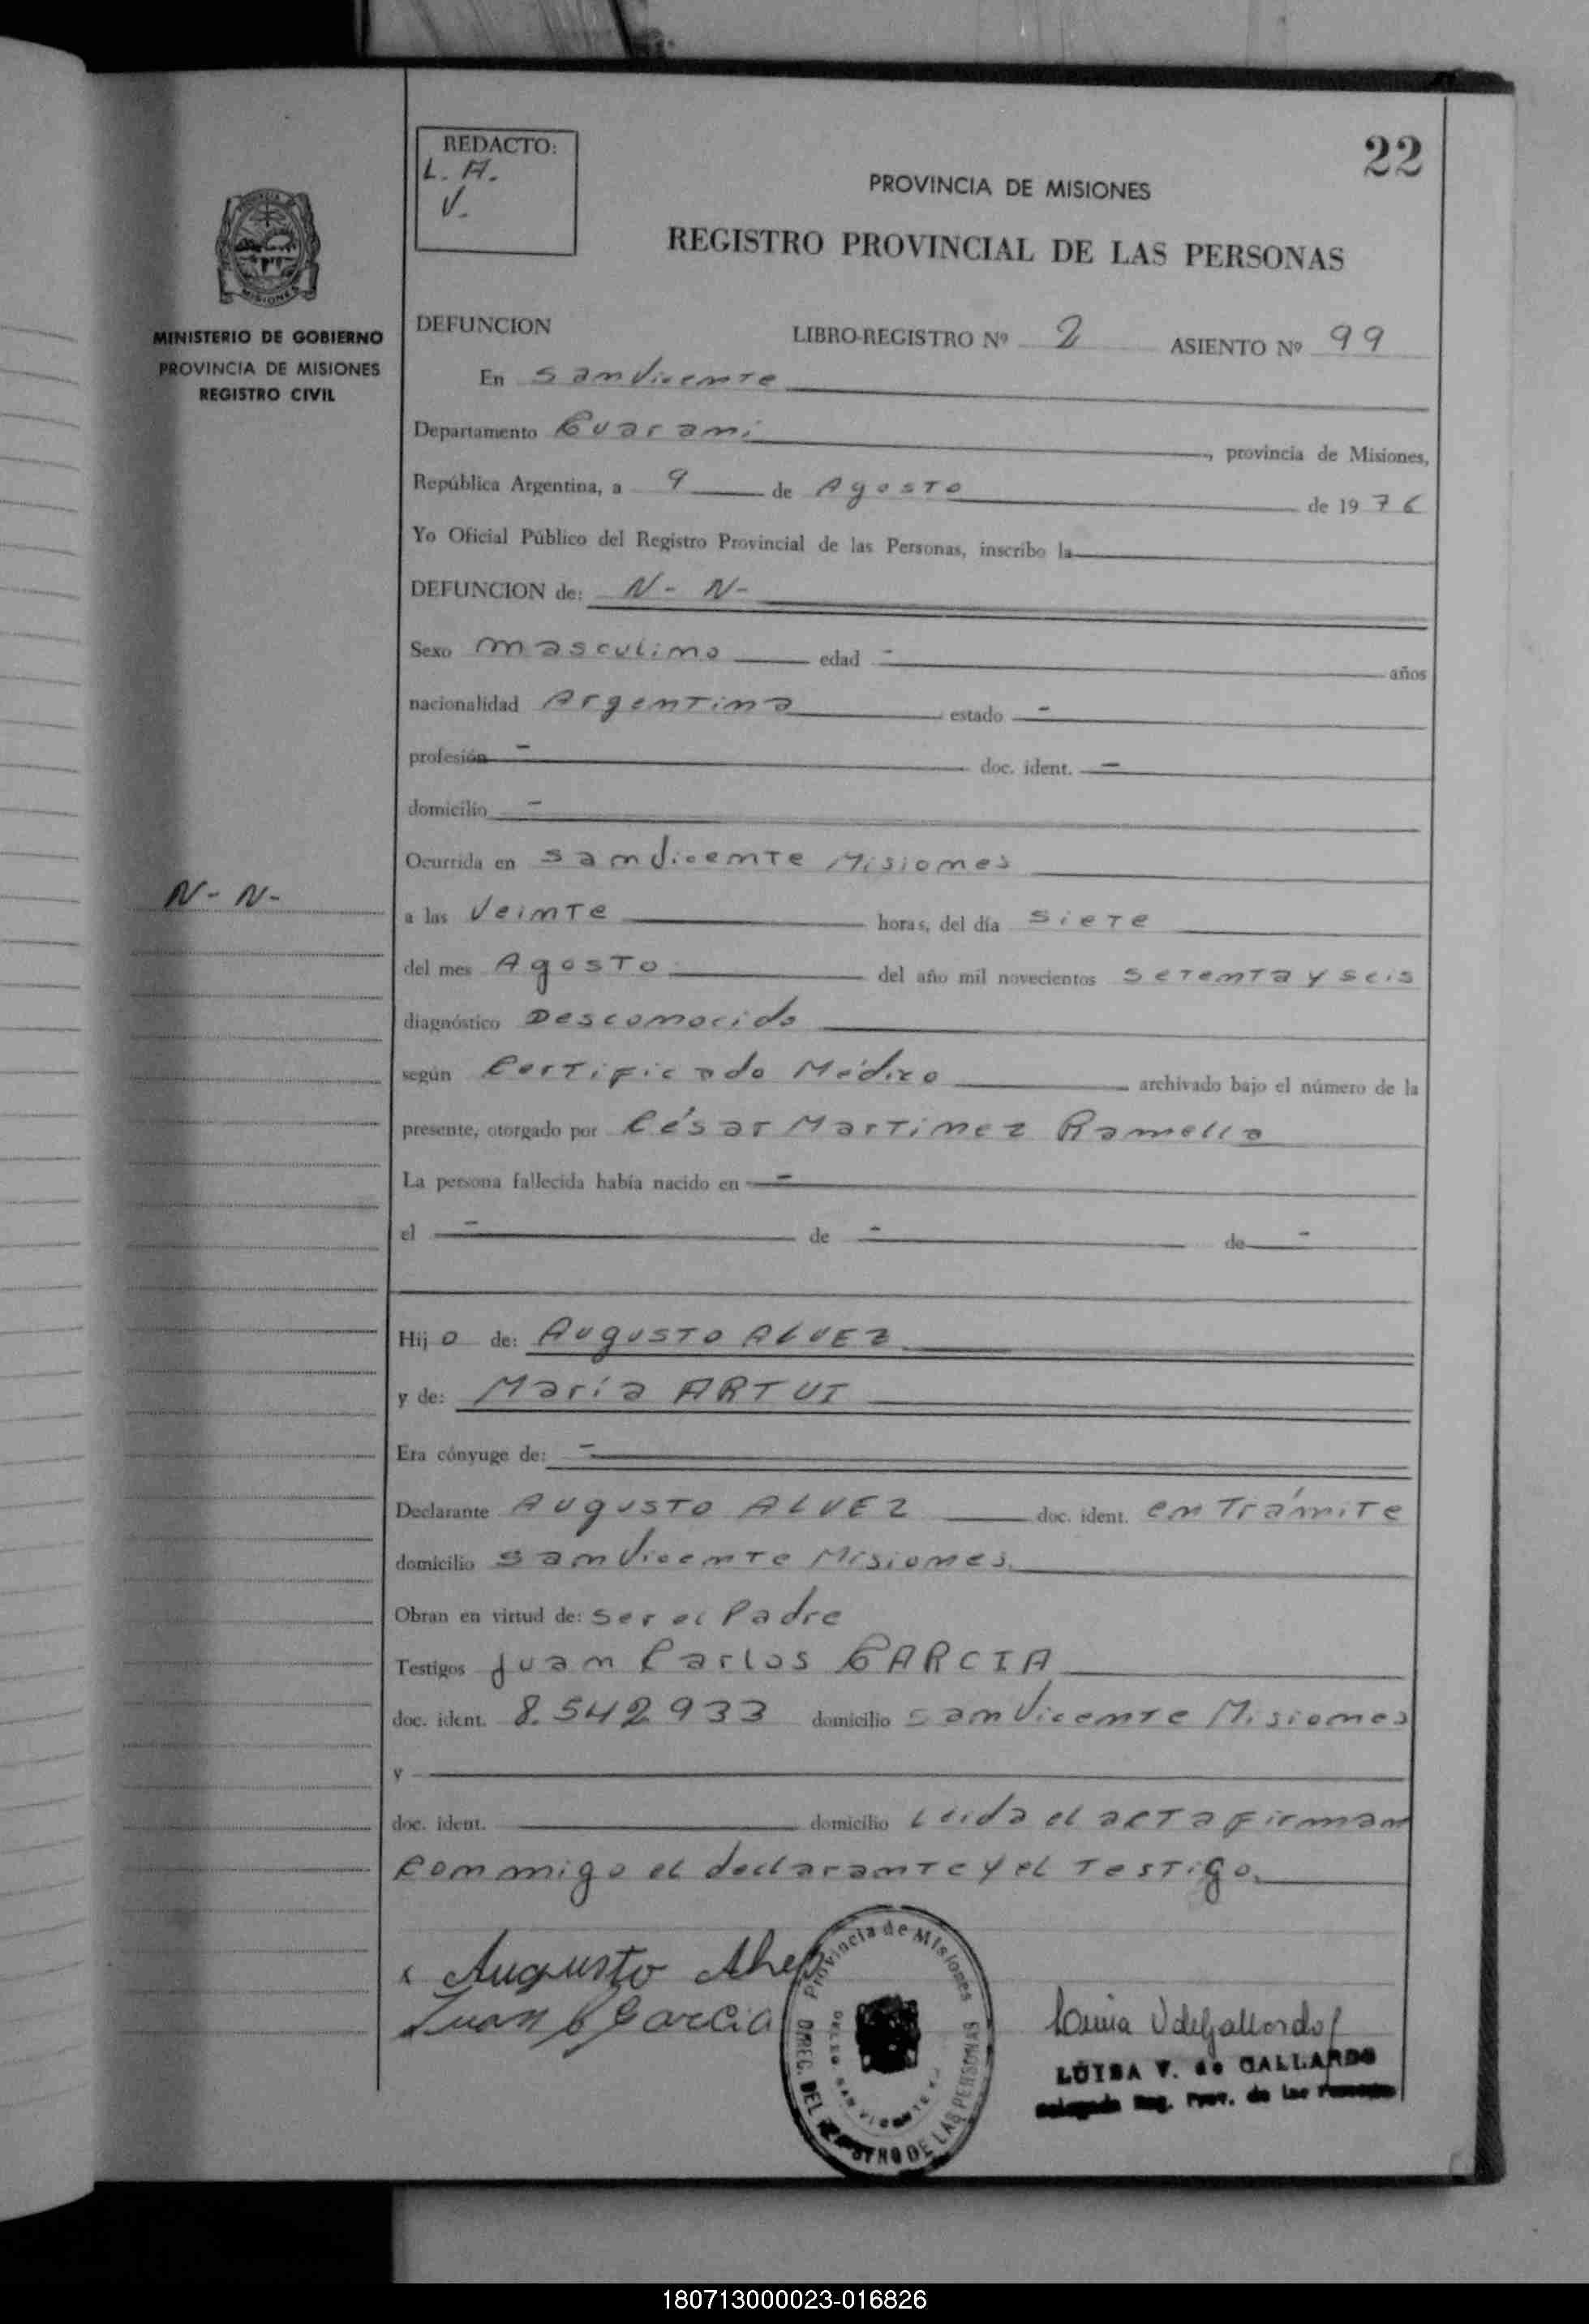 22
REDACTO:
L. A.
V.
PROVINCIA DE MISIONES
REGISTRO PROVINCIAL DE LAS PERSONAS
MISIONES
MINISTERIO DE GOBIERNO
PROVINCIA DE MISIONES
REGISTRO CIVIL
DEFUNCION LIBRO-REGISTRO Nº 2 ASIENTO Nº 99
En San Vicente
Departamento Guarani, provincia de Misiones,
República Argentina, a 9 de Agosto de 1976
Yo Oficial Público del Registro Provincial de las Personas, inscribo la
DEFUNCION de: N- N-
Sexo masculino edad - años
nacionalidad Argentina estado -
profesión - doc. ident. -
domicilio -
Ocurrida en San Vicente Misiones
N- N-
a las Veinte horas, del día siete
del mes Agosto del año mil novecientos setenta y seis
diagnóstico Desconocido
según Certificado Médico archivado bajo el número de la
presente, otorgado por César Martinez Ramella
La persona fallecida había nacido en -
el - de - de -
Hijo de: Augusto ALVEZ
y de: María ARTUI
Era cónyuge de: -
Declarante Augusto ALVEZ doc. ident. en Trámite
domicilio San Vicente Misiones
Obran en virtud de: ser el Padre
Testigos Juan Carlos GARCIA
doc. ident. 8.542933 domicilio San Vicente Misiones
y
doc. ident. domicilio Leida el acta firman
conmigo el declarante y el Testigo.
Augusto Alvez
Juan C Garcia
Provincia de Misiones
DIREC. DEL REGISTRO DE LAS PERSONAS
SAN VICENTE
Luisa V de Gallardo
LUISA V. de GALLARDO
Delegada Reg. Prov. de las Personas
180713000023-016826